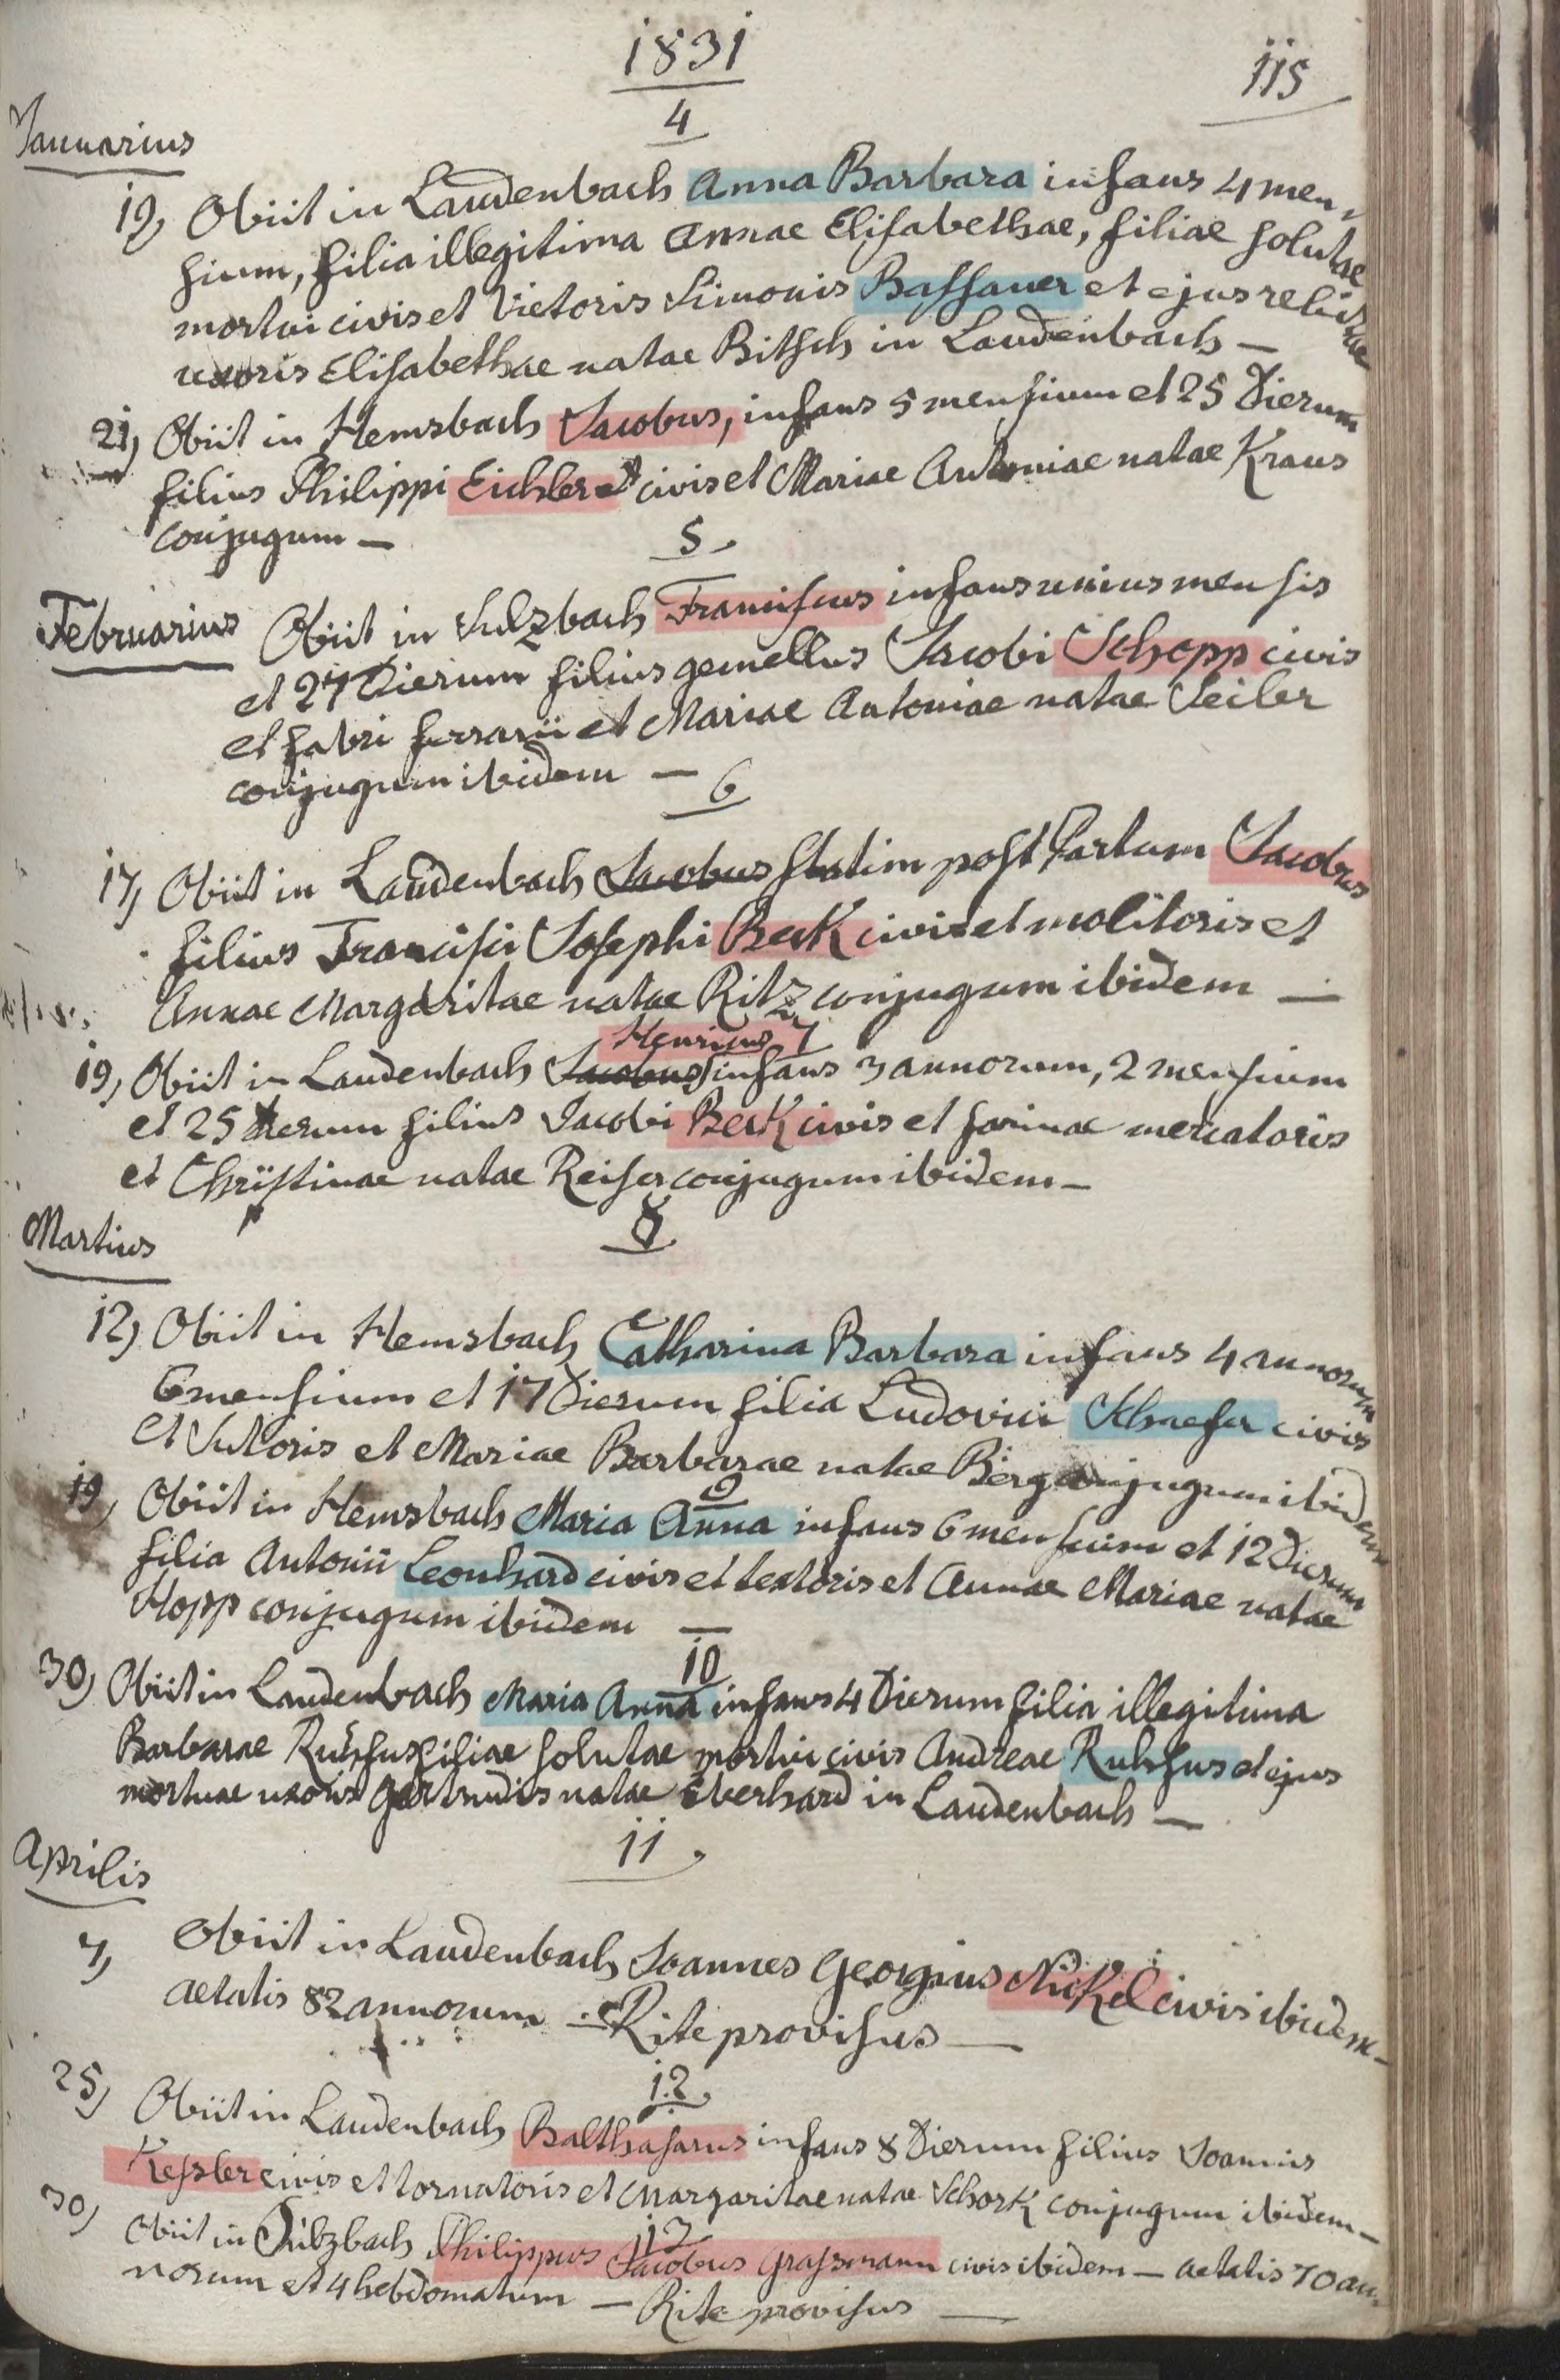 1831
115
4
Januarius
19, Obiit in Laudenbach Anna Barbara infans 4 men-
sium, filia illegitima Annae Elisabethae, filiae solutae
mortui civis et Vietoris Simonis Bassauer et ejus relictae
uxoris Elisabethae natae Bitsch in Laudenbach —
21, Obiit in Hemsbach Jacobus, infans 5 mensium et 25 Dierum
filius Philippi Eichler civis et Mariae Antoniae natae Kraus
conjugum —
5
Februarius Obiit in Sulzbach Franciscus infans unius mensis
et 27 Dierum filius gemellus Jacobi Schopp civis
et fabri ferrarii et Mariae Antoniae natae Seiler
conjugum ibidem —
6
17, Obiit in Laudenbach Jacobus statim post Partum Jacobus
filius Francisci Josephi Beck civis et molitoris et
Annae Margaritae natae Ritz conjugum ibidem —
Henricus 7
19, Obiit in Laudenbach Jacobus infans 3 annorum, 2 mensium
et 25 Dierum filius Jacobi Beck civis et farinae mercatoris
et Christinae natae Reiser conjugum ibidem —
8
Martius
12, Obiit in Hemsbach Catharina Barbara infans 4 annorum
6 mensium et 17 Dierum filia Ludovici Schaefer civis
et Sutoris et Mariae Barbarae natae Berg conjugum ibidem
9
19, Obiit in Hemsbach Maria Anna infans 6 mensium et 12 Dierum
filia Antonii Leonhard civis et textoris et Annae Mariae natae
Hopp conjugum ibidem —
10
30, Obiit in Laudenbach Maria Anna infans 4 Dierum filia illegitima
Barbarae Ruhfus filiae solutae mortui civis Andreae Ruhfus et ejus
mortuae uxoris Gertrudis natae Eberhard in Laudenbach —
11
Aprilis
7, Obiit in Laudenbach Joannes Georgius Nickel civis ibidem —
aetatis 82 annorum — Rite provisus —
12
25, Obiit in Laudenbach Balthasarus infans 8 Dierum filius Joannis
Kessler civis et tornatoris et Margaritae natae Schork conjugum ibidem —
13
30, Obiit in Sulzbach Philippus Jacobus Grassmann civis ibidem — aetatis 70 an-
norum et 4 hebdomatum — Rite provisus —